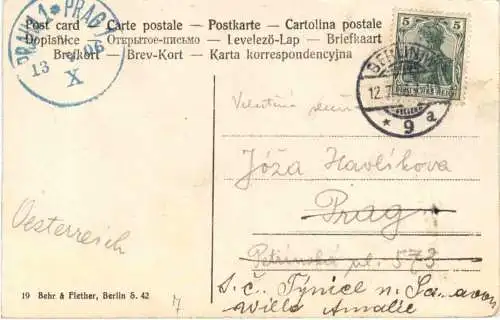 Post card – Carte postale – Postkarte – Cartolina postale
Dopisnice – Открытое-письмо – Levelező-Lap – Briefkaart
Brefkort – Brev-Kort – Karta korrespondencyjna
PRAHA 1 * PRAG 1
13
X
5 5
DEUTSCHES REICH
BERLIN W.
12. 7.
* 9 a
Velectěná slečna
Jóža Havlíkova
Prag
Petřínská ul. 573
s. č. Týnice n. Sazavou
Willa Amalie
Oesterreich
19 Behr & Flether, Berlin S. 42
7